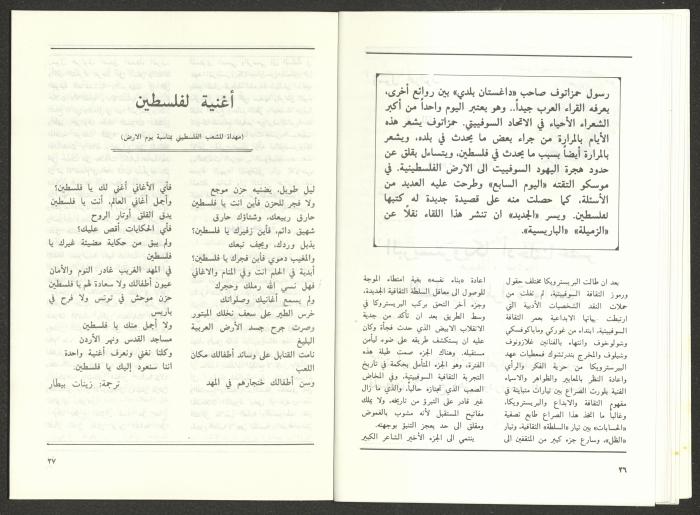 رسول حمزاتوف صاحب «داغستان بلدي» بين روائع أخرى،
يعرفه القراء العرب جيداً.. وهو يعتبر اليوم واحداً من أكبر
الشعراء الأحياء في الاتحاد السوفييتي. حمزاتوف يشعر هذه
الأيام بالمرارة من جراء بعض ما يحدث في بلده، ويشعر
بالمرارة أيضاً بسبب ما يحدث في فلسطين، ويتساءل بقلق عن
حدود هجرة اليهود السوفييت الى الارض الفلسطينية. في
موسكو التقته «اليوم السابع» وطرحت عليه العديد من
الأسئلة، كما حصلت منه على قصيدة جديدة له كتبها
لفلسطين. ويسر «الجديد» ان تنشر هذا اللقاء نقلاً عن
«الزميلة» «الباريسية».
بعد ان طالت البريسترويكا مختلف حقول
ورموز الثقافة السوفييتية، لم تفلت من
حملات النقد الشخصيات الأدبية التي
ارتبطت بيانها الابداعية بعمر الثقافة
السوفييتية، ابتداء من غوركي وماياكوفسكي
وشولوخوف وانتهاء بالفنانين غلازونوف
وشيلوف والمخرج بندرتشوك فمعطيات عهد
البيرسترويكا من حرية الفكر والرأي
واعادة النظر بالمعايير والظواهر والاسماء
الفنية بلورت الصراع بين تيارات متباينة في
مفهوم الثقافة والابداع والبريسترويكا،
وغالباً ما اتخذ هذا الصراع طابع تصفية
«الحسابات» بين تيار «السلطة» الثقافية، وتيار
«الظل»، وسارع جزء كبير من المثقفين الى
اعادة «بناء نفسه» بغية امتطاء الموجة
للوصول الى معاقل السلطة الثقافية الجديدة،
وجزء آخر التحق بركب البريسترويكا في
وسط الطريق بعد ان تأكد من جدية
الانقلاب الابيض الذي حدث فجأة وكان
عليه ان يستكشف طريقه على ضوء ليأمن
مستقبله، وهناك الجزء صمت طيلة هذه
الفترة، وهو الجزء المتأمل بحكمة في تاريخ
التجربة الثقافية السوفييتية، وفي المخاض
الصعب الذي تجتازه حالياً، والذي ما زال
غير قادر على التبرؤ من تاريخه، ولا يملك
مفاتيح المستقبل لأنه مشوب بالغموض
ومقلق الى حد يعجز التنبؤ بوجهته.
ينتمي الى الجزء الأخير الشاعر الكبير
٢٦
أغنية لفلسطين
(مهداة للشعب الفلسطيني بمناسبة يوم الارض)
ليل طويل، يضنيه حزن موجع
ولا فجر للحزن فأين انت يا فلسطين؟
حارق ربيعك، وشتاؤك حارق
شهيق دائم، فأين زفيرك يا فلسطين؟
يذبل وردك، ويجف نبعك
والمغيب دموي فأين فجرك يا فلسطين؟
أبدية في الحلم انت وفي المنام والاغاني
فهل نسي الله رملك وحجرك
ولم يسمع أغانيك وصلواتك
خرس الطير على سعف نخلك المبتور
وصرت جرح جسد الأرض العربية
البليغ
نامت القنابل على وسائد أطفالك مكان
اللعب
وسن أطفالك خنجارهم في المهد
فأي الأغاني أغني لك يا فلسطين؟
وأجمل أغاني العالم، أنت يا فلسطين
يدق القلق أوتار الروح
فأي الحكايات أقص عليك؟
ولم يبق من حكاية مضيئة غيرك يا
فلسطين
في المهد القريب غادر النوم والأمان
عيون أطفالك ولا سعادة لهم يا فلسطين
حزن موحش في تونس ولا فرح في
باريس
ولا أجمل منك يا فلسطين
مساجد القدس ونهر الأردن
وكلنا نغني ونعرف أغنية واحدة
اننا سنعود إليك يا فلسطين.
ترجمة: زينات بيطار
٢٧